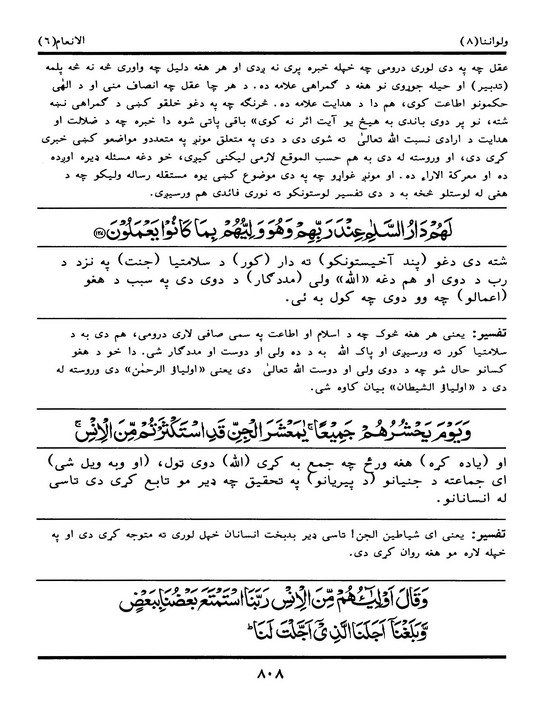 ولواننا(٨) الانعام(٦)
عقل چه په دی لوری درومی چه خپله خبره پری نه ږدی او هر هغه دلیل چه واوری څه نه څه پلمه
(تدبیر) او حیله جوړوی نو هغه د گمراهی علامه ده. د هر چا عقل چه انصاف منی او د الهٰی
حکمونو اطاعت کوی، هم دا د هدایت علامه ده. څرنگه چه په دغو خلقو کښی د گمراهی نښه
شته، نو پر دوی باندی به هیڅ یو آیت اثر نه کوی» باقی پاتی شوه دا خبره چه د ضلالت او
هدایت د ارادی نسبت الله تعالیٰ ته شوی دی د دی په متعلق مونږ په متعددو مواضعو کښی خبری
کړی دی، او وروسته له دی به هم حسب الموقع لازمی لیکنی کیږی، خو دغه مسئله ډیره اوږده
ده او معرکة الاراء ده. او مونږ غواړو چه په دی موضوع کښی یوه مستقله رساله ولیکو چه د
هغی له لوستلو څخه به د دی تفسیر لوستونکو ته نوری فائدی هم ورسیږی.
لَهُمْ دَارُ السَّلٰمِ عِنْدَ رَبِّهِمْ وَهُوَ وَلِيُّهُمْ بِمَا كَانُوْا يَعْمَلُوْنَ ﴿١٢٧﴾
شته دی دغو (پند آخیستونکو) ته دار (کور) د سلامتیا (جنت) په نزد د
رب د دوی او هم دغه «الله» ولی (مددگار) د دوی دی په سبب د هغو
(اعمالو) چه وو دوی چه کول به ئی.
تفسیر: یعنی هر هغه څوک چه د اسلام او اطاعت په سمی صافی لاری درومی، هم دی به د
سلامتیا کور ته ورسیږی او پاک الله به د ده ولی او دوست او مددگار شی. دا خو د هغو
کسانو حال شو چه د دوی ولی او دوست الله تعالیٰ دی یعنی «اولیاؤ الرحمٰن» دی وروسته له
دی د «اولیاؤ الشیطان» بیان کاوه شی.
وَيَوْمَ يَحْشُرُهُمْ جَمِيْعًا ۚ يٰمَعْشَرَ الْجِنِّ قَدِ اسْتَكْثَرْتُمْ مِّنَ الْاِنْسِ ۚ
او (یاده کړه) هغه ورځ چه جمع به کړی (الله) دوی ټول، (او وبه ویل شی)
ای جماعته د جنیانو (د پیریانو) په تحقیق چه ډیر مو تابع کړی دی تاسی
له انسانانو.
تفسیر: یعنی ای شیاطین الجن! تاسی ډیر بدبخت انسانان خپل لوری ته متوجه کړی دی او په
خپله لاره مو هغه روان کړی دی.
وَقَالَ اَوْلِيٰٓؤُهُمْ مِّنَ الْاِنْسِ رَبَّنَا اسْتَمْتَعَ بَعْضُنَا بِبَعْضٍ
وَّبَلَغْنَآ اَجَلَنَا الَّذِيْٓ اَجَّلْتَ لَنَا ؕ
٨٠٨